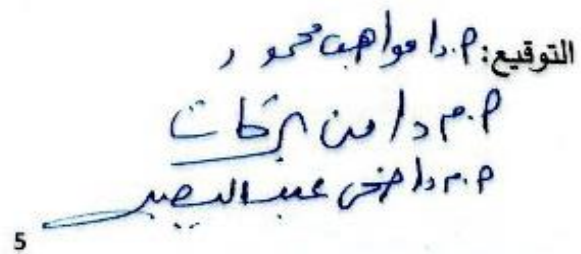 التوقيع: م.د/ مواهب محمود
م.م.د/ من بركات
م.م.د/ ضحى عبد البصير
5